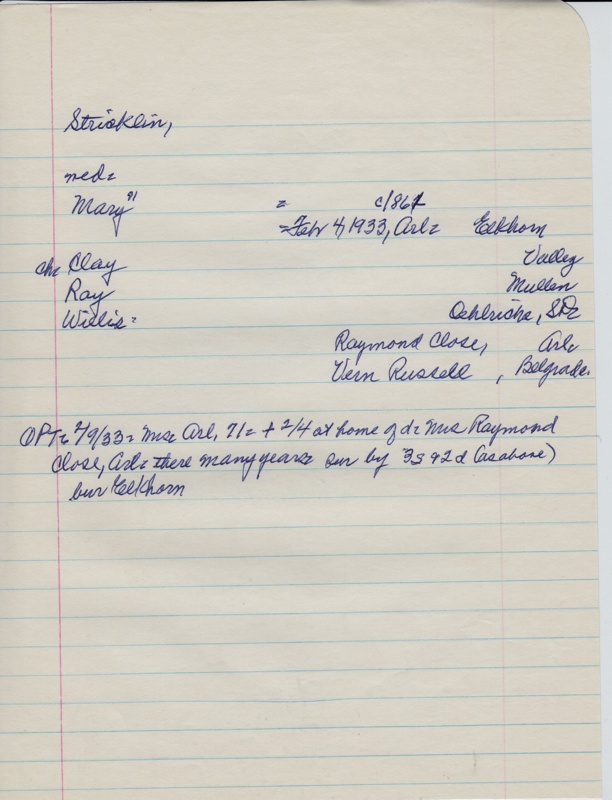 Stricklin,
med=
Mary 71 = c/861
=Feb 4, 1933, Arl= Elkhorn
ch= Clay Valley
Ray Mullen
Willis= Oelrichs, SD=
Raymond Close, Arl=
Vern Russell , Belgrade.
OPT= 2/9/33= Mrs= Arl, 71= + 2/4 at home of d= Mrs Raymond
Close, Arl= there many years= sur by 3s 92d (as above)
bur Elkhorn